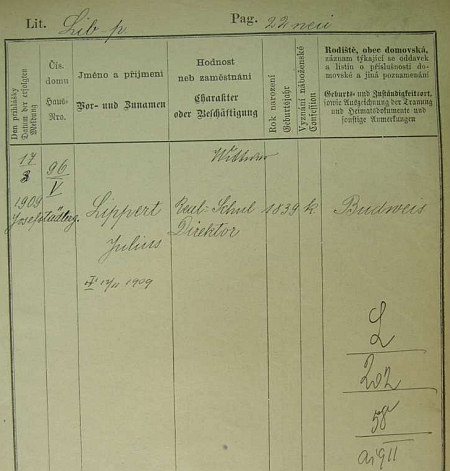 Lit. Lib-p Pag. 22 neu
Den přihlášky
Datum der erfolgten
Meldung
Čís.
domu
Haus-
Nro.
Jméno a příjmení
Vor- und Zunamen
Hodnost
neb zaměstnání
Charakter
oder Beschäftigung
Rok narození
Geburtsjahr
Vyznání náboženské
Confession
Rodiště, obec domovská,
záznam týkající se oddavek
a listin o příslušnosti do-
movské a jiná poznamenání
Geburts- und Zuständigkeitsort,
sowie Aufzeichnung der Trauung
und Heimatsdokumente und
sonstige Anmerkungen
17
3
1909
96
V
Lippert
Julius
12/11 1909
Witwer
Real-Schul
Direktor
1839
k.
Budweis
L
202
58